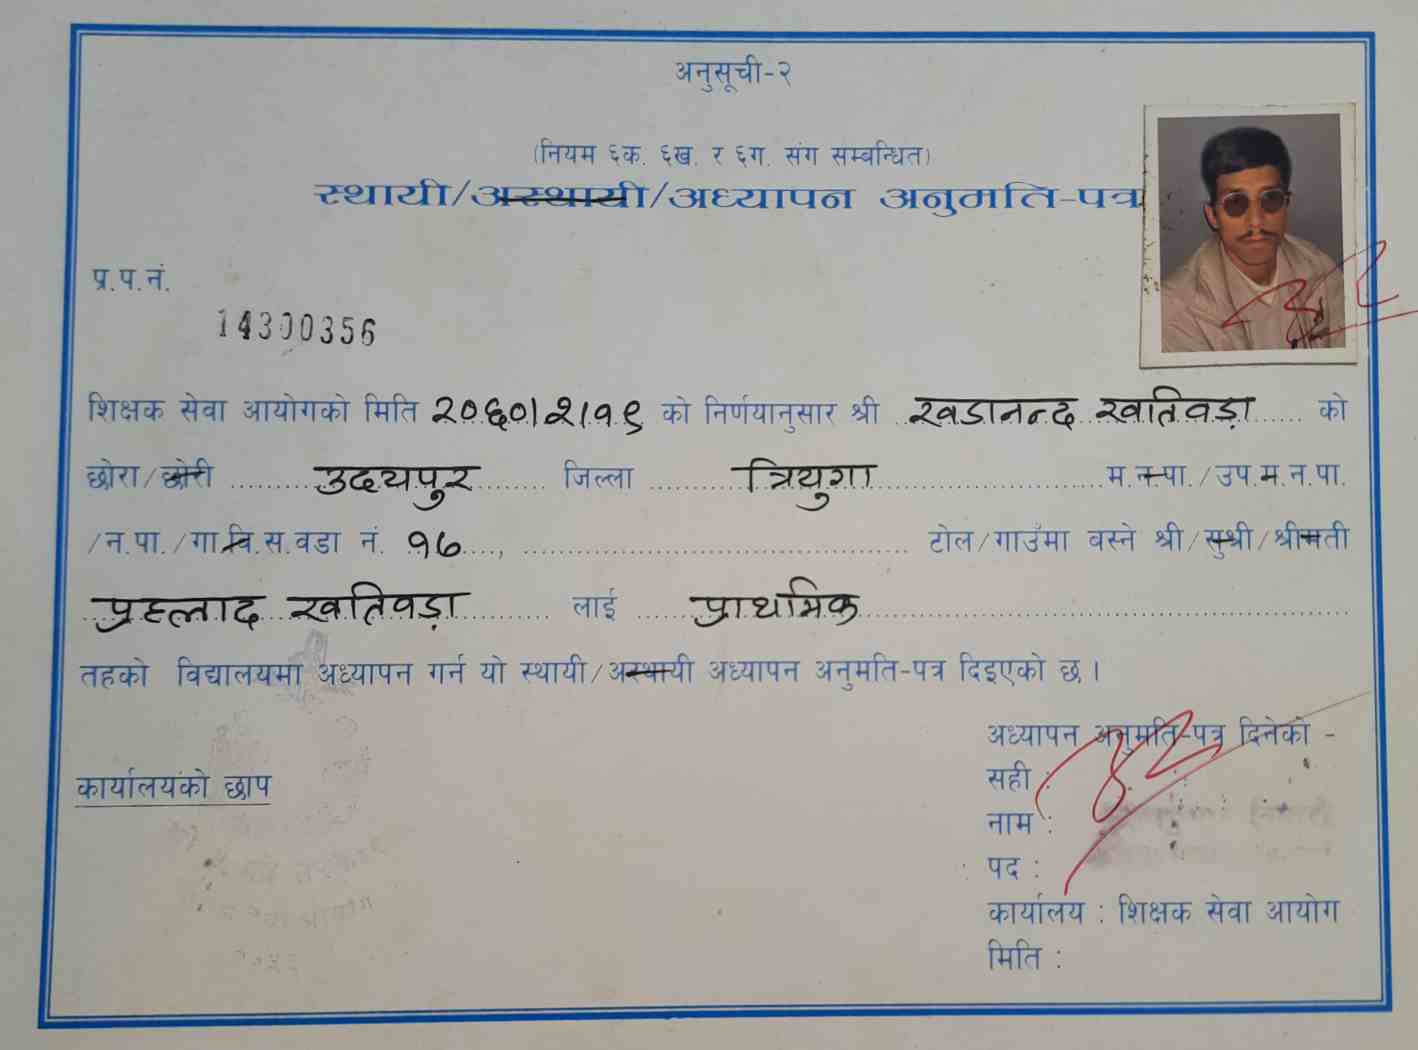 अनुसूची-२
(नियम ६क. ६ख. र ६ग. संग सम्बन्धित)
स्थायी/अस्थायी/अध्यापन अनुमति-पत्र
प्र.प.नं.
14300356
शिक्षक सेवा आयोगको मिति २०६०।२।१९ को निर्णयानुसार श्री खडानन्द खतिवडा को
छोरा/छोरी उदयपुर जिल्ला त्रियुगा म.न.पा./उप.म.न.पा.
/न.पा./गा.वि.स.वडा नं. १७, टोल/गाउँमा बस्ने श्री/सुश्री/श्रीमती
प्रहलाद खतिवडा लाई प्राथमिक
तहको विद्यालयमा अध्यापन गर्न यो स्थायी/अस्थायी अध्यापन अनुमति-पत्र दिइएको छ।
अध्यापन अनुमति-पत्र दिनेको -
सही :
कार्यालयको छाप
नाम :
पद :
कार्यालय : शिक्षक सेवा आयोग
मिति :